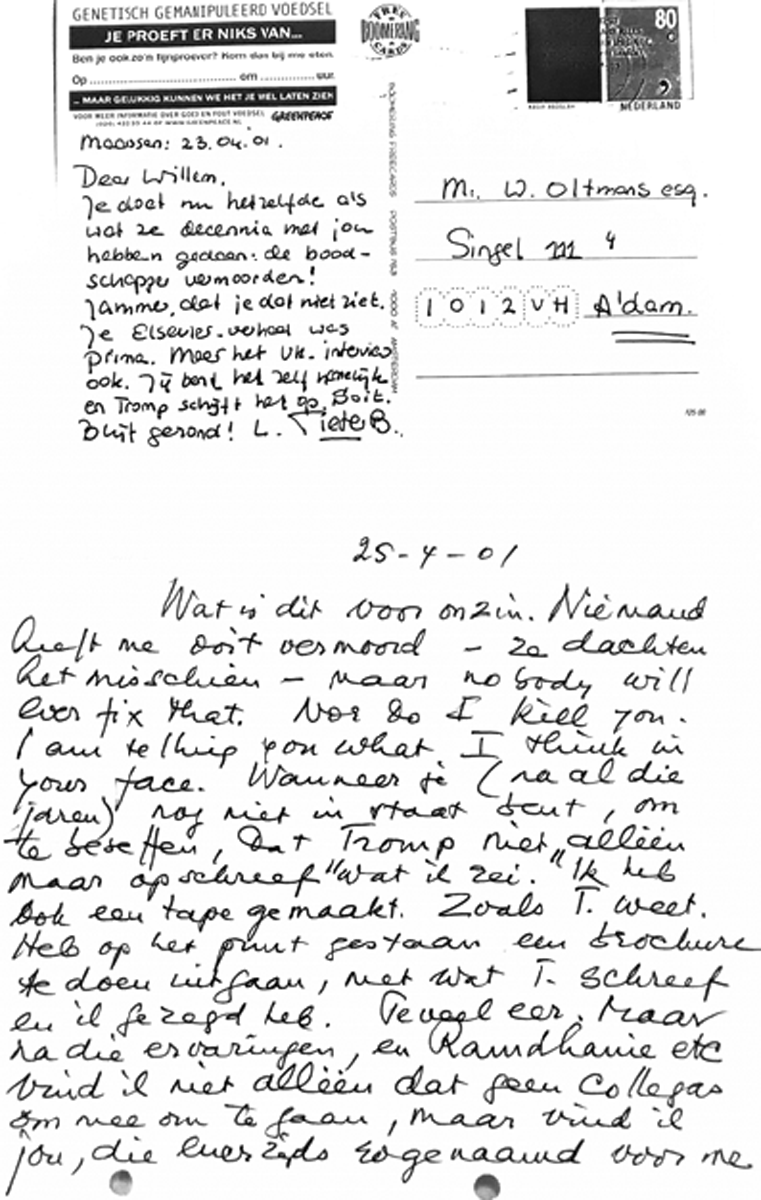 GENETISCH GEMANIPULEERD VOEDSEL
JE PROEFT ER NIKS VAN...
Ben je ook zo'n fijnproever? Kom dan bij me eten.
Op ............ om ............ uur.
... MAAR GELUKKIG KUNNEN WE HET JE WEL LATEN ZIEN
VOOR MEER INFORMATIE OVER GOED EN FOUT VOEDSEL
OF WWW.GREENPEACE.NL GREENPEACE
FREE
BOOMERANG
CARDS
BOOMERANG FREECARDS POSTBUS AMSTERDAM
80
NEDERLAND
Maarssen: 23.04.'01.
Dear Willem,
Je doet nu hetzelfde als
wat ze decennia met jou
hebben gedaan: de bood-
schapper vermoorden!
Jammer, dat je dat niet ziet.
Je Elsevier-verhaal was
prima. Meer het VK-interview
ook. Jij bent het zelf
en Tromp schrijft het op.
Blijf gezond! L. Pieter B.
Mr. W. Oltmans esq.
Singel
1012 VH A'dam.
25-4-01
Wat is dit voor onzin. Niemand
heeft me ooit vermoord - ze dachten
het misschien - maar nobody will
ever fix that. Nor do I kill you.
I am telling you what I think in
your face. Wanneer je (na al die
jaren) nog niet in staat bent, om
te beseffen, dat Tromp niet „alléén
maar opschreef" wat ik zei." Ik heb
ook een tape gemaakt. Zoals T. weet.
Heb op het punt gestaan een brochure
te doen uitgaan, met wat T. schreef
en ik gezegd heb. Teveel eer. Maar
na die ervaringen, en Ramdhanie etc
vind ik niet alléén dat geen collegas
om mee om te gaan, maar vind ik
jou, die enerzijds zogenaamd voor me